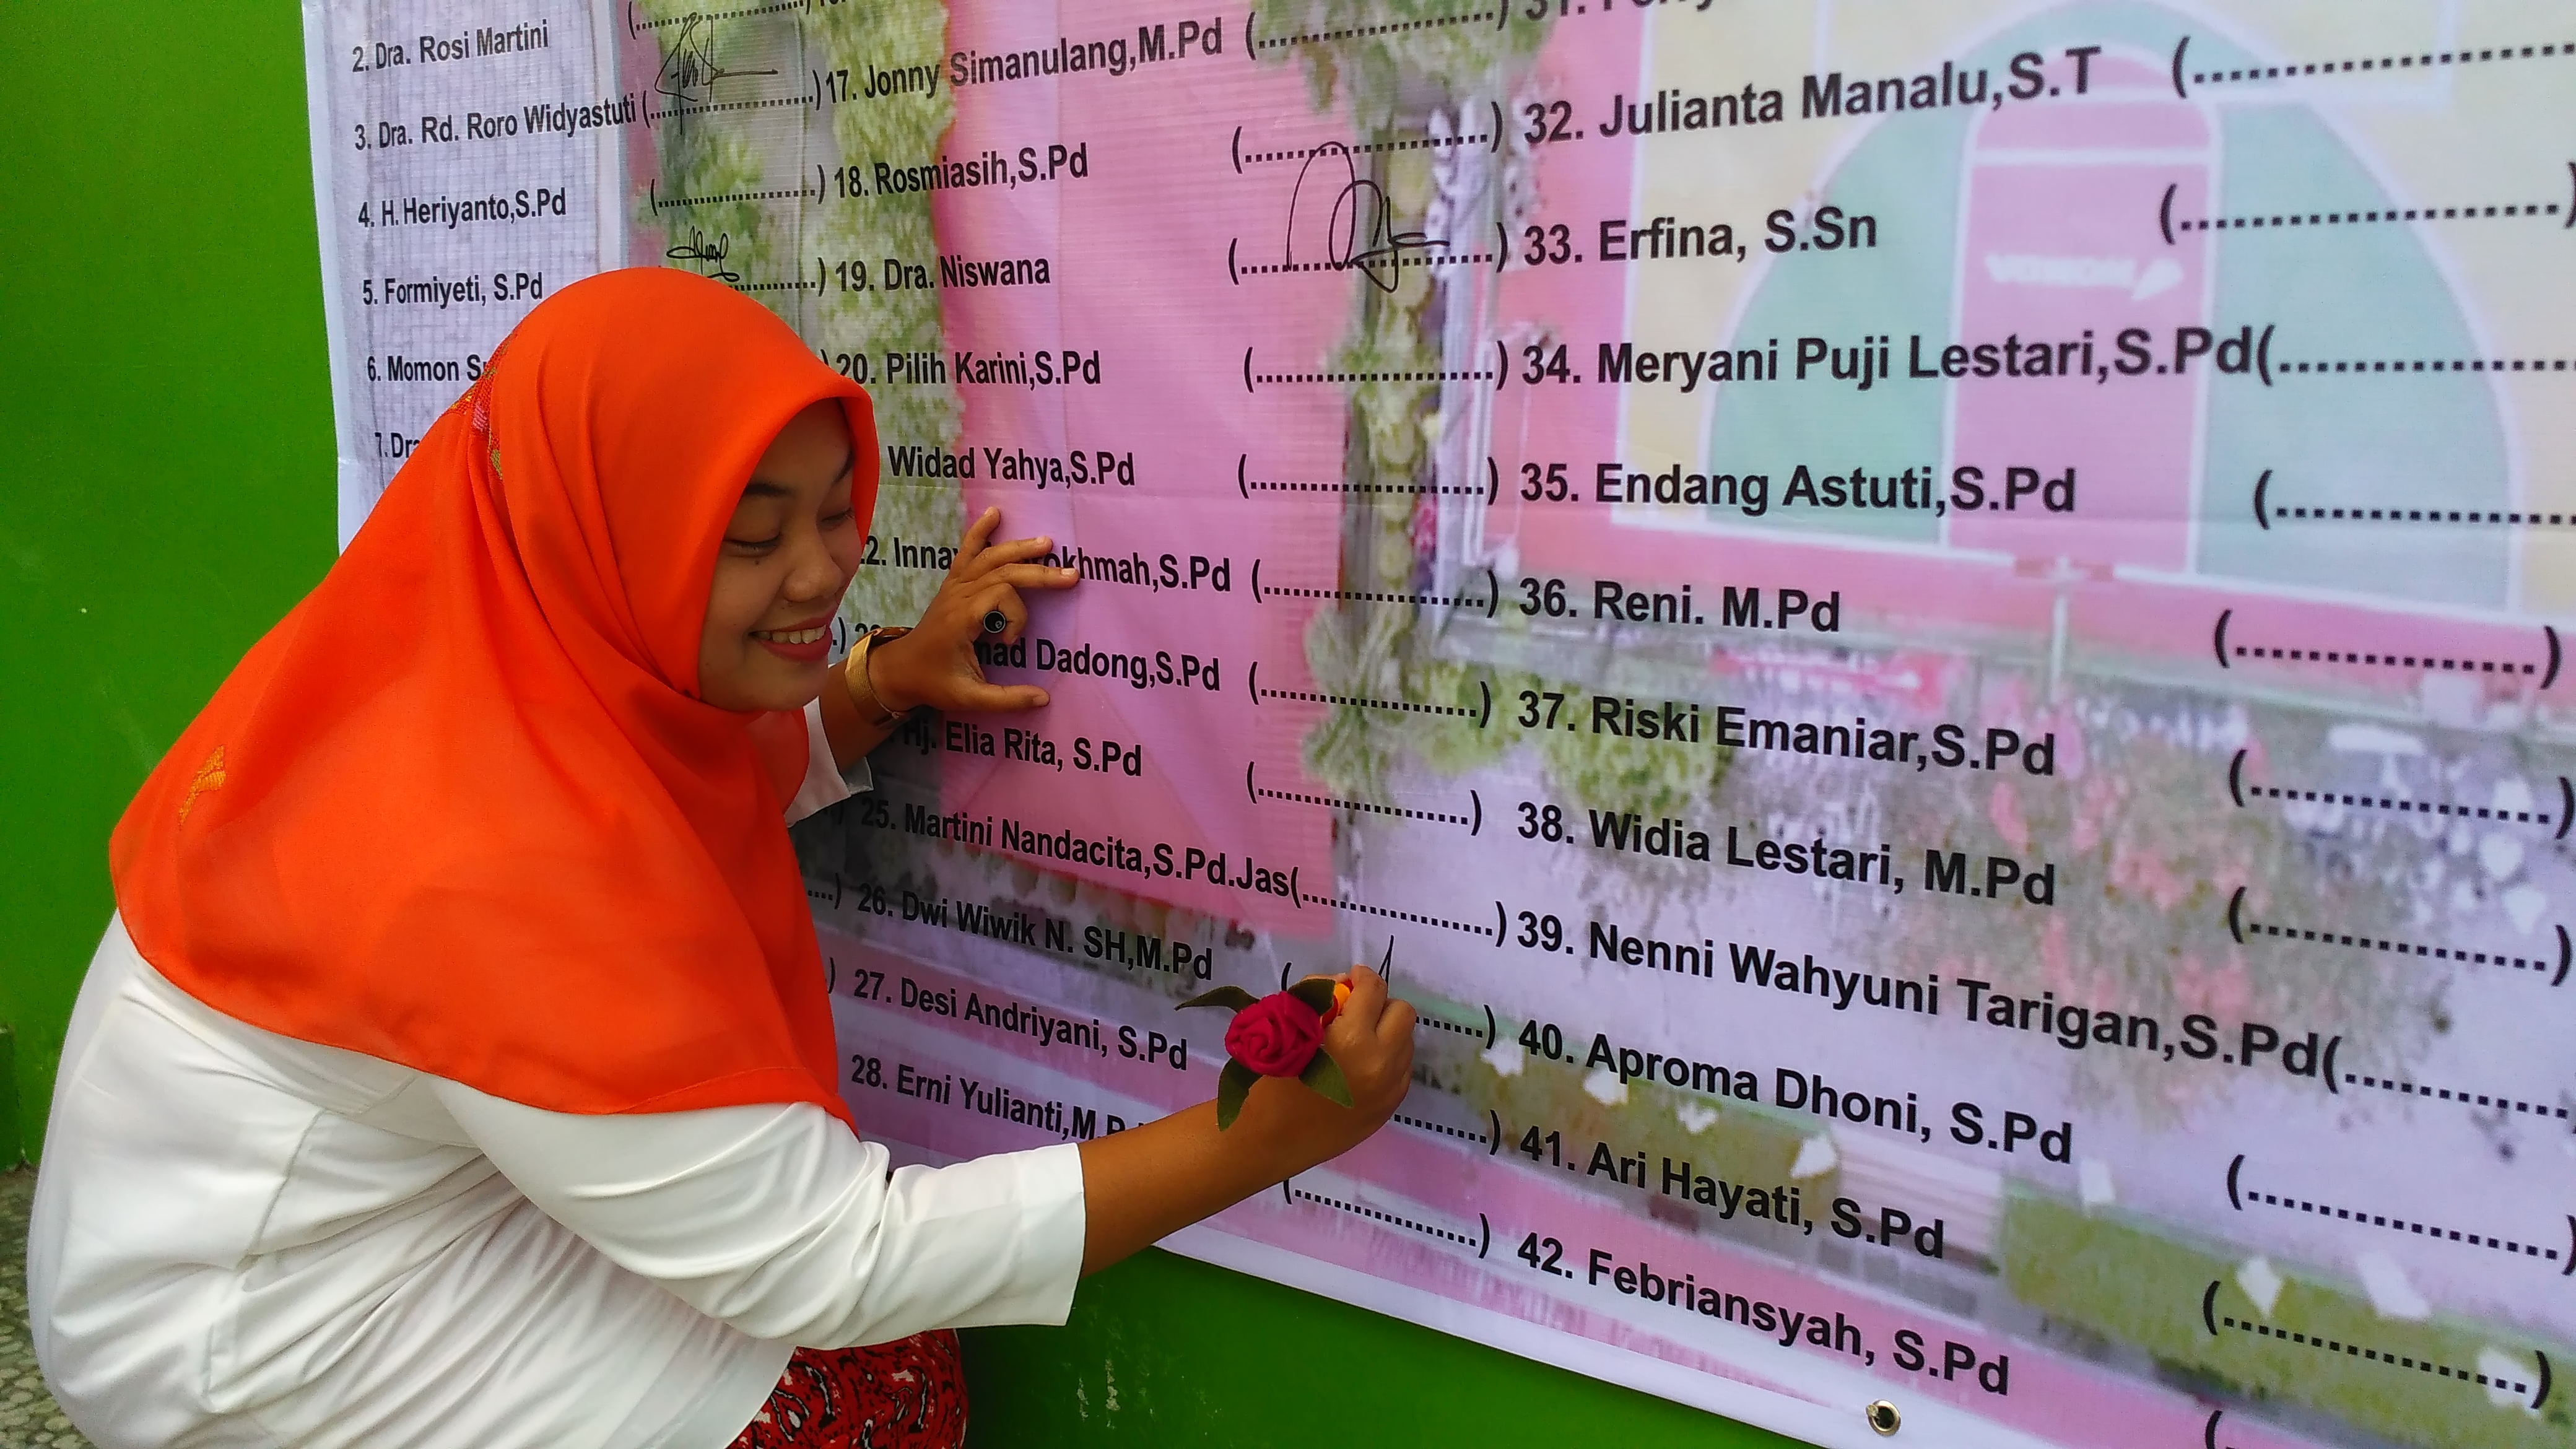 2. Dra. Rosi Martini
3. Dra. Rd. Roro Widyastuti (....................)
4. H. Heriyanto,S.Pd (....................)
5. Formiyeti, S.Pd ............)
6. Momon
7. Dra
17. Jonny Simanulang,M.Pd (....................)
18. Rosmiasih,S.Pd (....................)
19. Dra. Niswana (....................)
20. Pilih Karini,S.Pd (....................)
Widad Yahya,S.Pd (....................)
2. Inna okhmah,S.Pd (....................)
mad Dadong,S.Pd (....................)
Hj. Elia Rita, S.Pd (....................)
25. Martini Nandacita,S.Pd.Jas(....................)
26. Dwi Wiwik N. SH,M.Pd ( .......)
27. Desi Andriyani, S.Pd .........)
28. Erni Yulianti,M.P (....................)
31.
32. Julianta Manalu,S.T (....................
33. Erfina, S.Sn (....................)
34. Meryani Puji Lestari,S.Pd(................
35. Endang Astuti,S.Pd (................
36. Reni. M.Pd (................)
37. Riski Emaniar,S.Pd (................)
38. Widia Lestari, M.Pd (................)
39. Nenni Wahyuni Tarigan,S.Pd(............
40. Aproma Dhoni, S.Pd (................)
41. Ari Hayati, S.Pd (................)
42. Febriansyah, S.Pd (